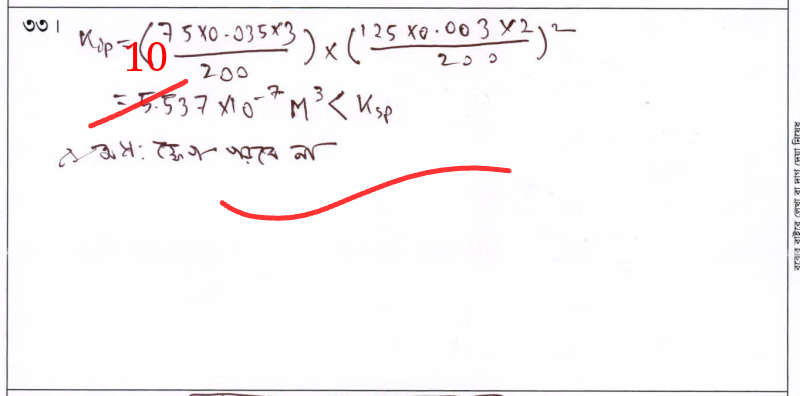 ৩৩। Ksp = (75×0.035×3 / 200) × (125×0.003×2 / 200)²
10
= 5.537×10⁻⁷ M³ < Ksp
∴ অধ: ক্ষেপ পরবে না
বক্সের বাইরে লেখা বা দাগ দেয়া নিষেধ